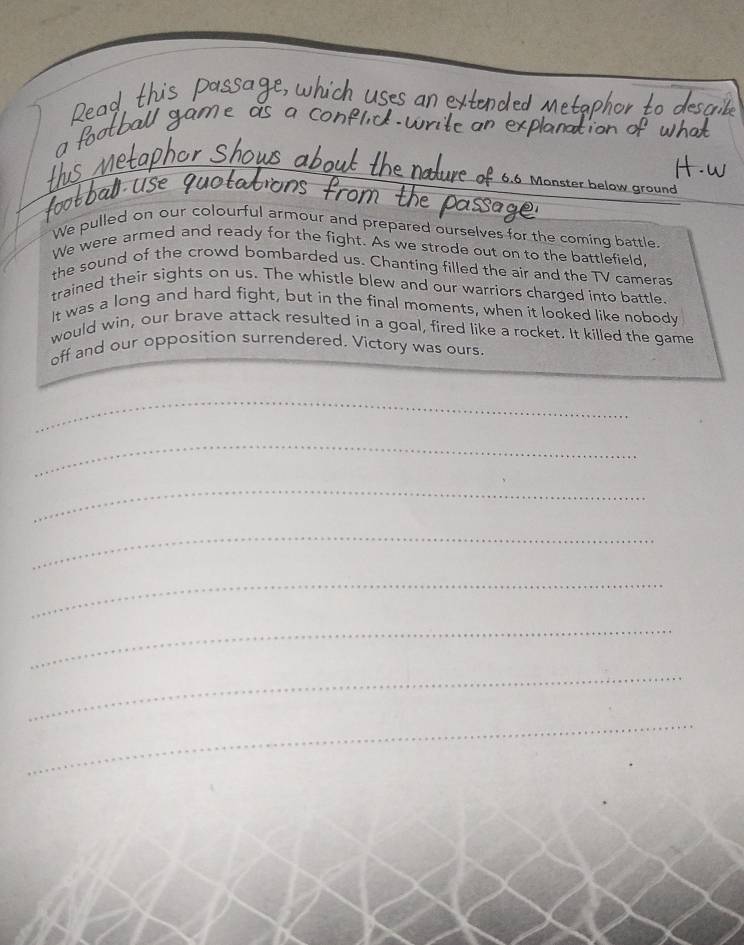 Read this passage, which uses an extended metaphor to describe
a football game as a conflict. write an explanation of what
this metaphor shows about the nature of 6.6 Monster below ground H.W
football. use quotations from the passage.
We pulled on our colourful armour and prepared ourselves for the coming battle.
We were armed and ready for the fight. As we strode out on to the battlefield,
the sound of the crowd bombarded us. Chanting filled the air and the TV cameras
trained their sights on us. The whistle blew and our warriors charged into battle.
It was a long and hard fight, but in the final moments, when it looked like nobody
would win, our brave attack resulted in a goal, fired like a rocket. It killed the game
off and our opposition surrendered. Victory was ours.